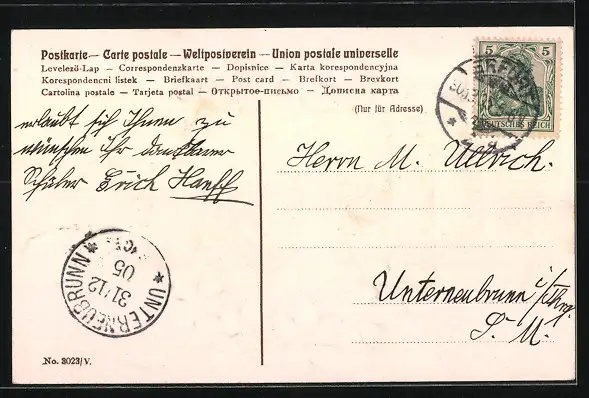 Postkarte — Carte postale — Weltpostverein — Union postale universelle
Levelező-Lap — Correspondenzkarte — Dopisnice — Karta korespondencyjna
Korespondencni listek — Briefkaart — Post card — Brefkort — Brevkort
Cartolina postale — Tarjeta postal — Открытое-письмо — Дописна карта
(Nur für Adresse)
5 5
DEUTSCHES REICH
erlaubt sich Ihnen zu
wünschen Ihr dankbarer
Schüler Erich Hanff
Herrn M. Ullrich.
Unterneubrunn i/Thrg.
S. M.
UNTERNEUBRUNN
31/12
05
No. 3023/V.